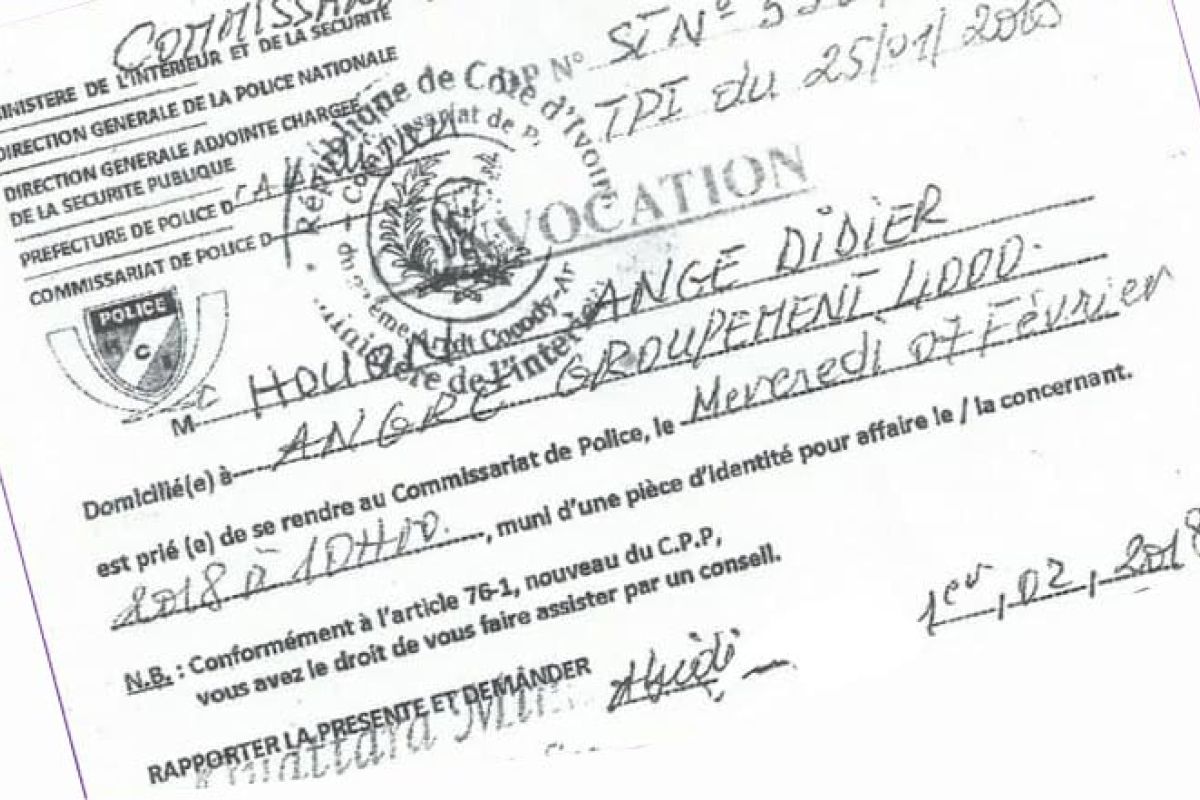 COMMISSAR
MINISTERE DE L'INTERIEUR ET DE LA SECURITE
DIRECTION GENERALE DE LA POLICE NATIONALE
DIRECTION GENERALE ADJOINTE CHARGEE
DE LA SECURITE PUBLIQUE
PREFECTURE DE POLICE D
COMMISSARIAT DE POLICE D
République de Côte d'Ivoire
POLICE
N° SIN°
TPI du 25/01/
VOCATION
M HOUON ANGE DIDIER
Domicilié(e) à ANGRE GROUPEMENT 4000.
est prié (e) de se rendre au Commissariat de Police, le Mercredi 07 Février
2018 à 10H00., muni d'une pièce d'identité pour affaire le / la concernant.
N.B. : Conformément à l'article 76-1, nouveau du C.P.P,
vous avez le droit de vous faire assister par un conseil.
1er, 02, 2018
RAPPORTER LA PRESENTE ET DEMANDER